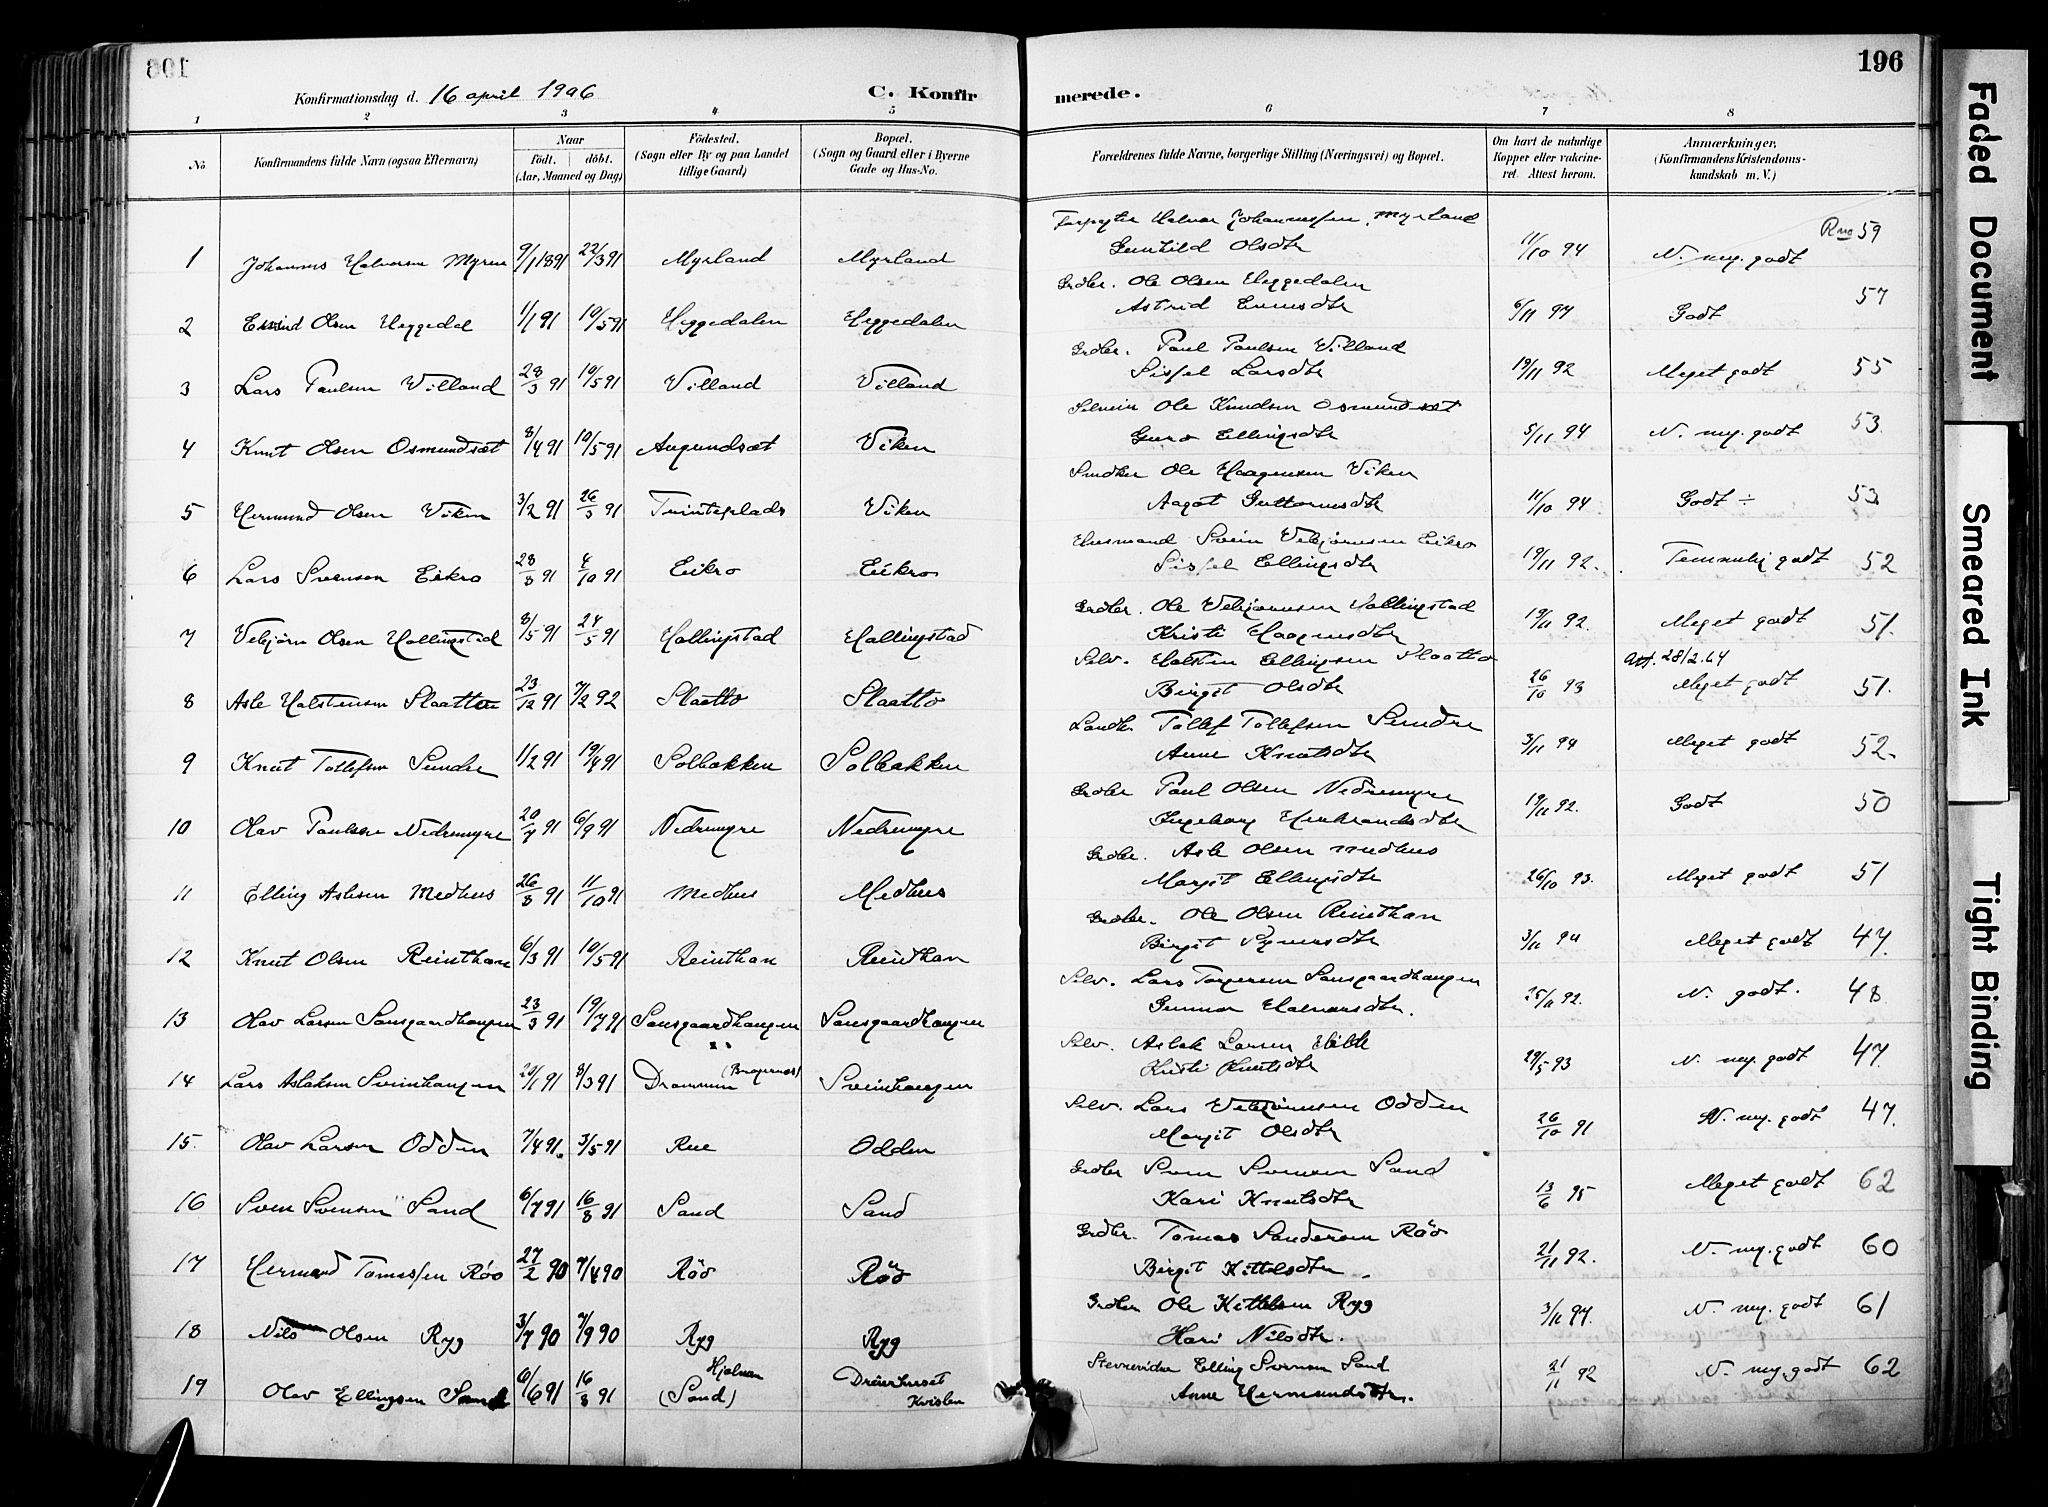 196
Konfirmationsdag d. 16 april 1906
C. Konfirmerede.
1 2 3 4 5 6 7 8
No
Konfirmandens fulde Navn (ogsaa Efternavn)
Naar
födt. döbt.
(Aar, Maaned og Dag)
Födested.
(Sogn eller By og paa Landet
tillige Gaard)
Bopæl.
(Sogn og Gaard eller i Byerne
Gade og Hus-No.
Forældrenes fulde Navne, borgerlige Stilling (Næringsvei) og Bopæl.
Om havt de naturlige
Kopper eller vakcine-
ret. Attest herom.
Anmærkninger,
(Konfirmandens Kristendoms-
kundskab m. V.)
Halvor Johannessen Myrland
1 Johannes Halvorsen Myren 9/1 1891 22/3 91 Myrland Myrland Gunhild Olsdtr 11/10 94 N. meg. godt 59
Grdbr. Ole Olsen Heggedalen
2 Eivind Olsen Heggedal 1/1 91 10/5 91 Heggedalen Heggedalen Astrid 6/11 94 Godt 57
Grdbr. Paul Paulsen Villand
3 Lars Paulsen Villand 28/3 91 10/5 91 Villand Villand Sissel Larsdtr 19/11 92 Meget godt 55
Selveier Ole Knudsen Osmundsæt
4 Knut Olsen Osmundsæt 8/4 91 10/5 91 Augundsæt Viken Guro Ellingsdtr 5/11 94 N. meg. godt 53.
Ole Haagensen Viken
5 Hermund Olsen Viken 3/2 91 26/3 91 Viken Aagot Guttormsdtr 11/10 94 Godt ÷ 53
Husmand Svein Vebjørnsen Eikro
6 Lars Svensen Eikro 28/8 91 4/10 91 Eikro Eikro Sissel Ellingsdtr 19/11 92. Temmelig godt 52
Grdbr. Ole Vebjørnsen Hallingstad
7 Vebjörn Olsen Hallingstad 8/5 91 24/5 91 Hallingstad Hallingstad Kristi Haagensdtr 19/11 92. Meget godt 51.
Selv. Halsten Ellingsen Slaatto 28/2.64
8 Asle Halstensen Slaatten 23/12 91 7/2 92 Slaatto Slaatto Birgit Olsdtr 26/10 93 Meget godt 51.
Landh. Tollef Tollefsen Sundre
9 Knut Tollefsen Sundre 1/2 91 19/4 91 Solbakken Solbakken Anne Knutsdtr 3/11 94 Meget godt 52.
Grdbr Paul Olsen Nedremyre
10 Olav Paulsen Nedremyre 20/7 91 6/9 91 Nedremyre Nedremyre Ingeborg Embrandsdtr 19/11 92. Godt 50
Grdbr. Asle Olsen Medhus
11 Elling Aslesen Medhus 26/8 91 11/10 91 Medhus Medhus Margit Ellingsdtr 26/10 93. Meget godt 51
Grdbr. Ole Olsen Reinthan
12 Knut Olsen Reinthan 6/3 91 10/5 91 Reinthan Reinthan Birgit 3/11 94 Meget godt 47.
Selv. Lars Torgersen Sansgaardhaugen
13 Olav Larsen Sansgaardhaugen 23/3 91 19/7 91 Sansgaardhaugen Sansgaardhaugen Gunnor Halvorsdtr. 25/11 92. N. godt. 48
Selv. Aslak Larsen
14 Lars Aslaksen Sveinhaugen 20/1 91 8/3 91 Drammen (Bragernes) Sveinhaugen Kristi Knutsdtr 29/5 93 N. meg. godt 47.
Selv. Lars Vebjørnsen Odden
15. Olav Larsen Odden 7/4 91. 3/5 91 Rue Odden Margit Olsdtr 26/10 91 N. meg. godt 47.
Grdbr Sven Svensen Sand
16 Sven Svensen Sand 6/7 91 16/8 91 Sand Sand Kari Knutsdtr 13/6 95 Meget godt 62
Grdbr. Tomas Sandersen Röo
17 Hermand Tomassen Röo 27/2 90 7/4 90 Röo Röo Birgit Kittelsdtr. 21/11 92. N. meg. godt 60
Grdbr Ole Kittelsen Ryg
18 Nils Olsen Ryg 3/7 90 7/9 90 Ryg Ryg Kari Nilsdtr. 3/11 94. N. meg. godt 61
Elling Svensen Sand
19 Olav Ellingsen Sand 6/6 91 16/8 91 Hjelmen (Sand) Kvislen Anne Hermundsdtr. 21/11 92 N. meg. godt 62
Faded Document
Smeared Ink
Tight Binding